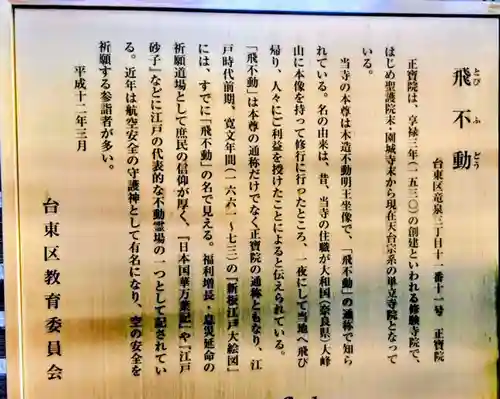 飛不動
とび ふ どう
台東区竜泉三丁目十一番十一号 正寳院
正寳院は、享禄三年(一五三〇)の創建といわれる修験寺院で、
はじめ聖護院末・園城寺末から現在天台宗系の単立寺院となって
いる。
当寺の本尊は木造不動明王坐像で、「飛不動」の通称で知ら
れている。名の由来は、昔、当寺の住職が大和国(奈良県)大峰
山に本像を持って修行に行ったところ、一夜にして当地へ飛び
帰り、人々にご利益を授けたことによると伝えられている。
「飛不動」は本尊の通称だけでなく正寳院の通称ともなり、江
戸時代前期、寛文年間(一六六一〜七三)の『新板江戸大絵図』
には、すでに「飛不動」の名で見える。福利増長・息災延命の
祈願道場として庶民の信仰が厚く、『日本国華万葉記』や『江戸
砂子』などに江戸の代表的な不動霊場の一つとして記されてい
る。近年は航空安全の守護神として有名になり、空の安全を
祈願する参詣者が多い。
平成十二年三月
台東区教育委員会